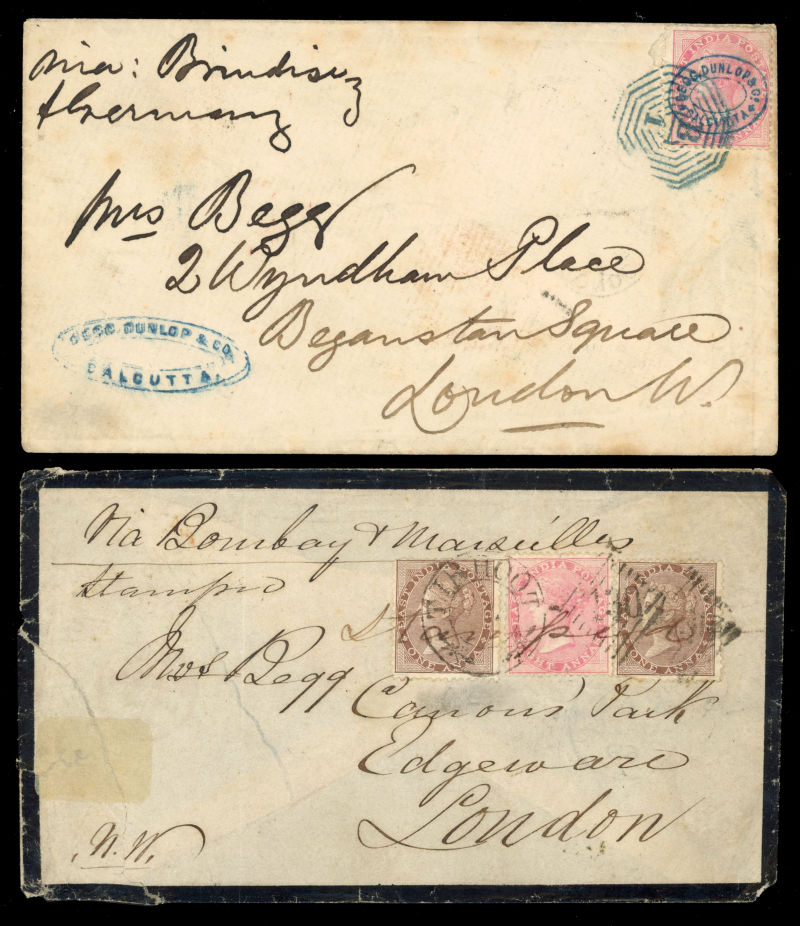 via: Brindisi &
Germany
EAST INDIA POSTAGE
BEGG. DUNLOP & Co
CALCUTTA
B
1
Mrs Begg
2 Wyndham Place
Beganstan Square
London W.
BEGG. DUNLOP & CO.
CALCUTTA.
Via Bombay & Marseilles
Stamped
EAST INDIA POSTAGE
ONE ANNA
TIRHOOT
EAST INDIA POSTAGE
EAST INDIA POSTAGE
ONE ANNA
Mrs Begg
Canons Park
Edgeware
London
N.W.